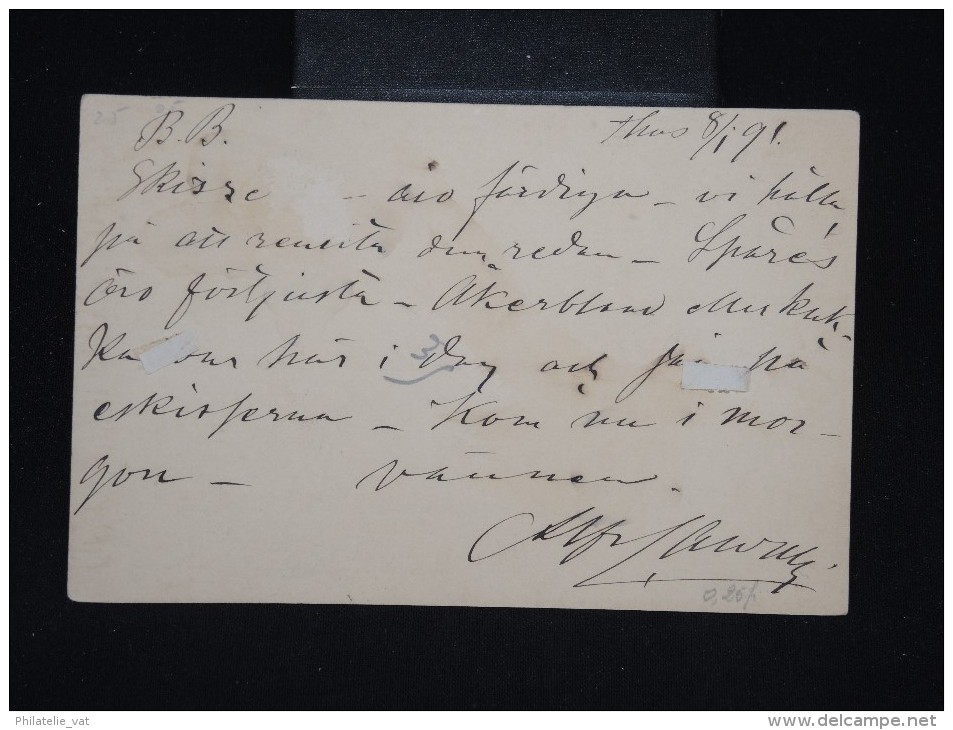 25 25
B.B. Thus 8/1 91.
Skisse – äro färdiga – vi hålla
på att rensita dem redan – Spåres
äro förtjusta – Åkerblom
Ka var här i dag och på
eskisserna – Kom nu i mor–
gon – vännen.
Alfr
3
0,25
Philatelie_vat
www.delcampe.net